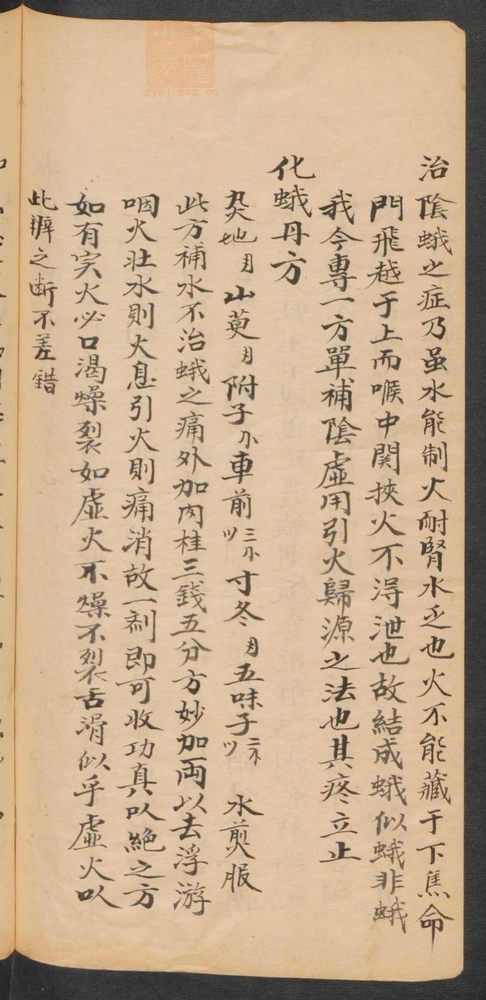 治陰蛾之症乃虽水能制火耐腎水乏也火不能藏于下焦命
門飛越于上而喉中関挾火不淂泄也故結成蛾似蛾非蛾
我今專一方單補陰虛用引火歸源之法也其疼立止
化蛾丹方
地 山萸 附子 車前 寸冬 五味子 水煎服
此方補水不治蛾之痛外加肉桂三錢五分方妙加両以去浮游
咽火壮水則火息引火則痛消故一剤即可收功真以絶之方
如有実火必口渴燥裂如虛火不燥不裂舌滑似乎虛火以
此辨之断不差錯